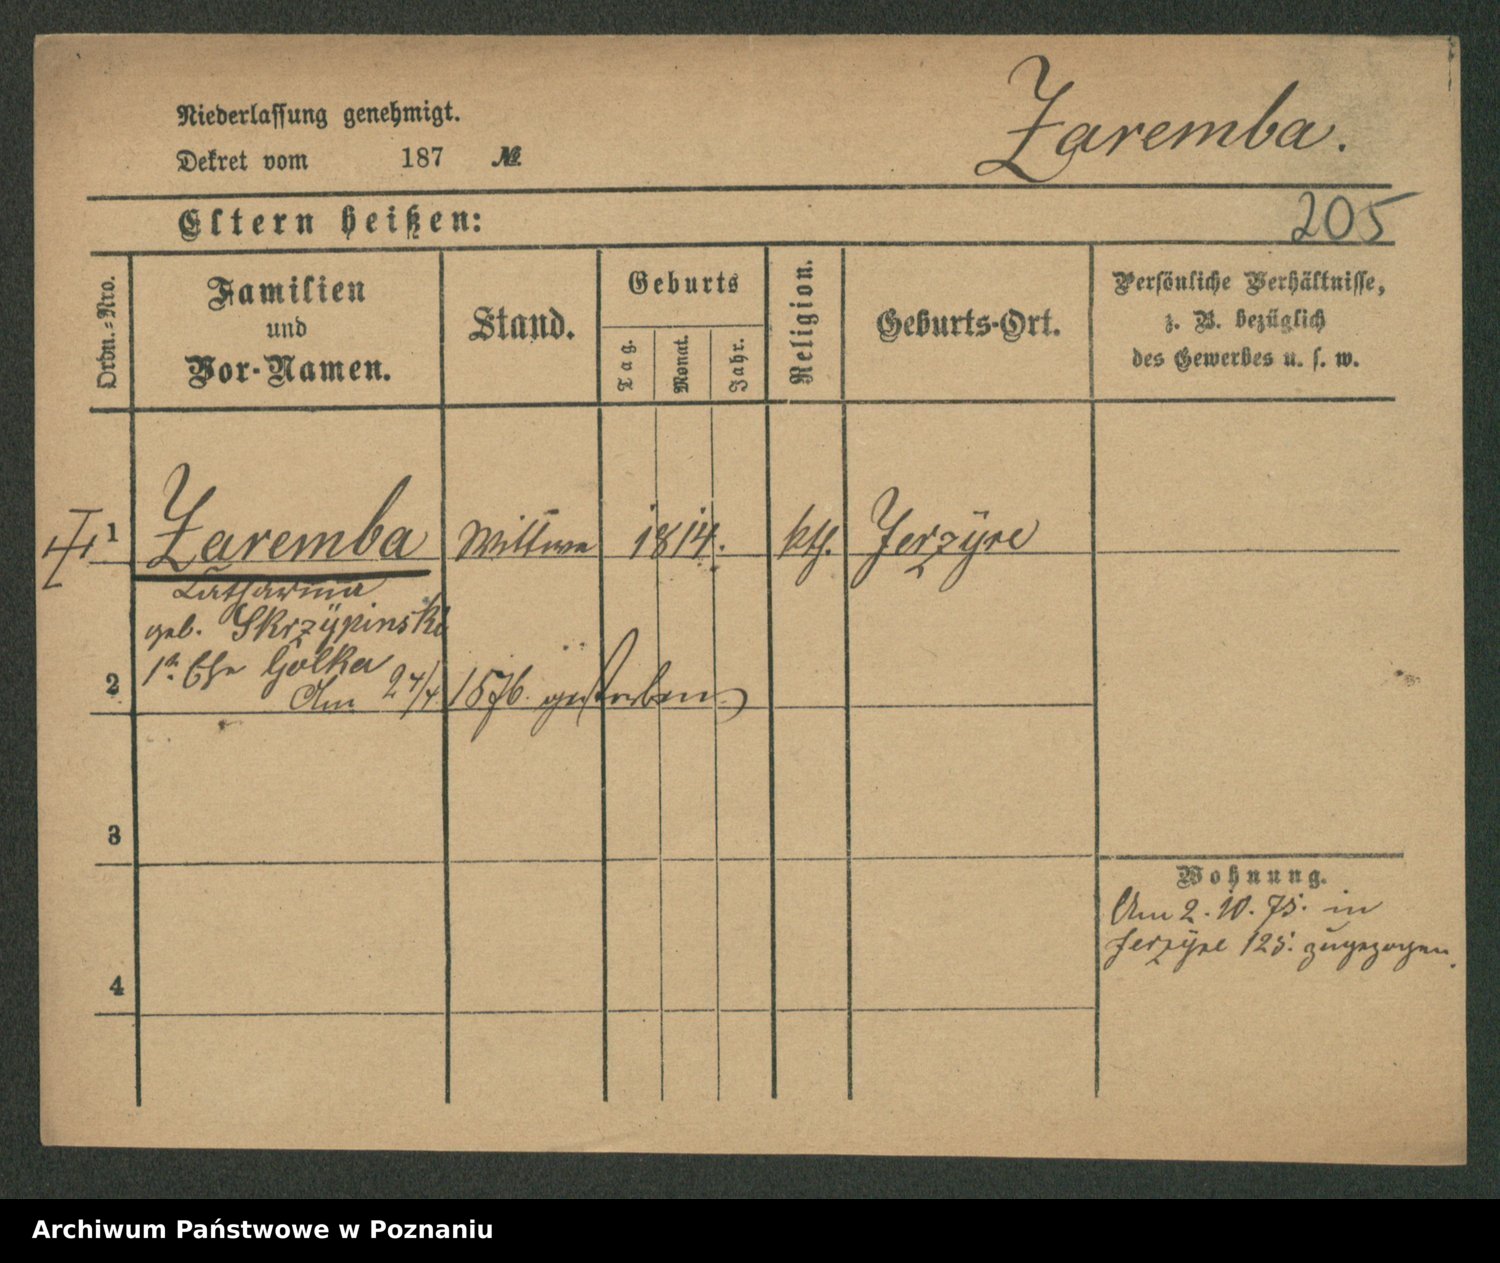 Niederlassung genehmigt.
Dekret vom 187 №
Zaremba.
205
Eltern heißen:
Ordn.-Nro.
Familien
und
Vor-Namen.
Stand.
Geburts
Tag.
Monat.
Jahr.
Religion.
Geburts-Ort.
Persönliche Verhältnisse,
z. B. bezüglich
des Gewerbes u. s. w.
1 Zaremba Wittwe 1814. kth. Jerzÿce
Catharina
geb. Skrzÿpinski
1te Ehe Golka
2 Am 27/4 1876 gestorben
3
Wohnung.
Am 2. 10. 75. in
Jerzÿce 125. zugezogen.
4
Archiwum Państwowe w Poznaniu